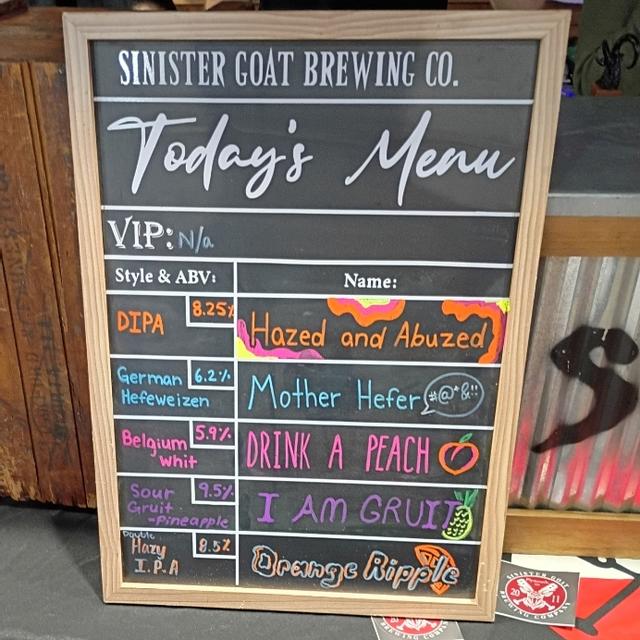 SINISTER GOAT BREWING CO.
Today's Menu
VIP: N/a
Style & ABV: Name:
DIPA 8.25% Hazed and Abuzed
German Hefeweizen 6.2% Mother Hefer #@*&!!
Belgium Whit 5.9% DRINK A PEACH
Sour Gruit -Pineapple 9.5% I AM GRUIT
Double Hazy I.P.A 8.5% Orange Ripple
S
SINISTER GOAT
20 11
BREWING COMPANY